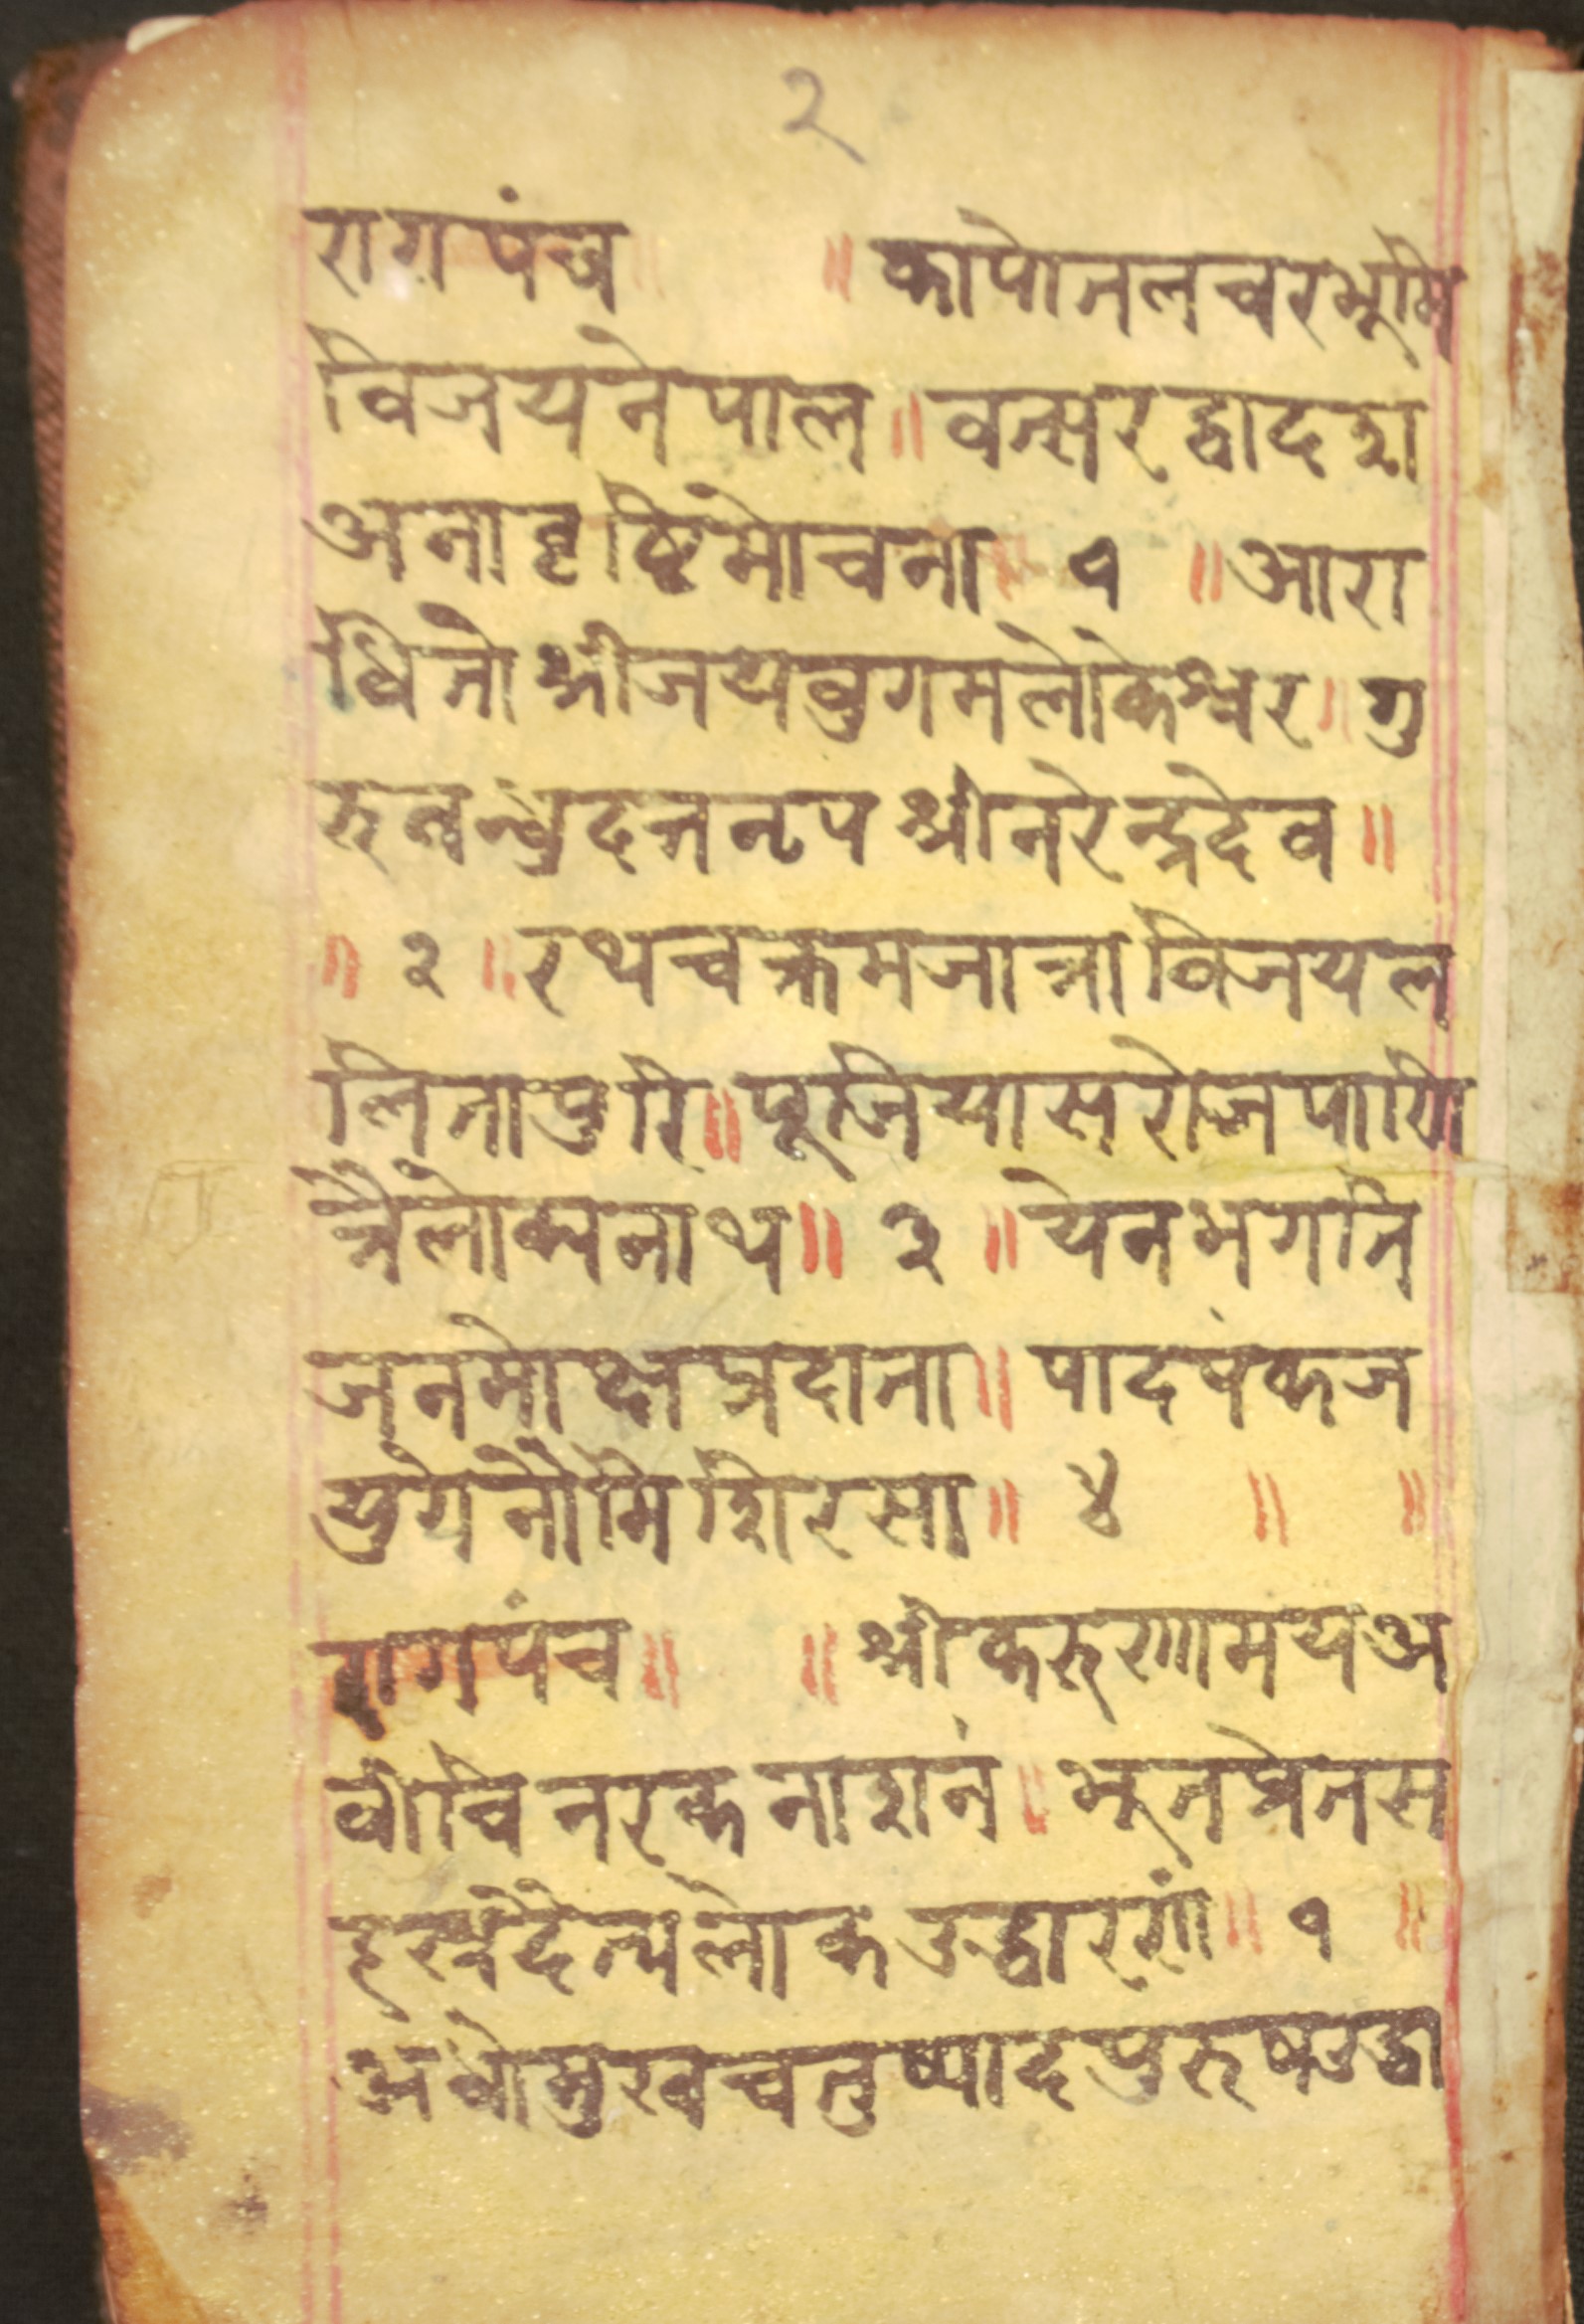 २
रागपंच ॥ कापोतलचरभूमि
विजयनेपाल ॥ वत्सरद्वादश
अनावृष्टिमोचना ॥ १ ॥ आरा
धितो श्रीजयवुगमलोकेश्वर ॥ गु
रुवन्धुदत्तनृप श्रीनरेन्द्रदेव ॥
॥ २ ॥ रथचक्रमजात्राविजयल
लितापुरि ॥ पूजियासरोजपाणि
त्रैलोक्यनाथ ॥ ३ ॥ येनभगति
जनमोक्षप्रदाता ॥ पादपंकज
युगेनौमिशिरसा ॥ ४ ॥ ॥
रागपंच ॥ ॥ श्रीकरुणामयअ
वीचिनरकनाशनं ॥ भूतप्रेतस
हस्रदैत्यलोकउद्धारणं ॥ १ ॥
अधोमुखचतुष्पादपुरुषउद्धा